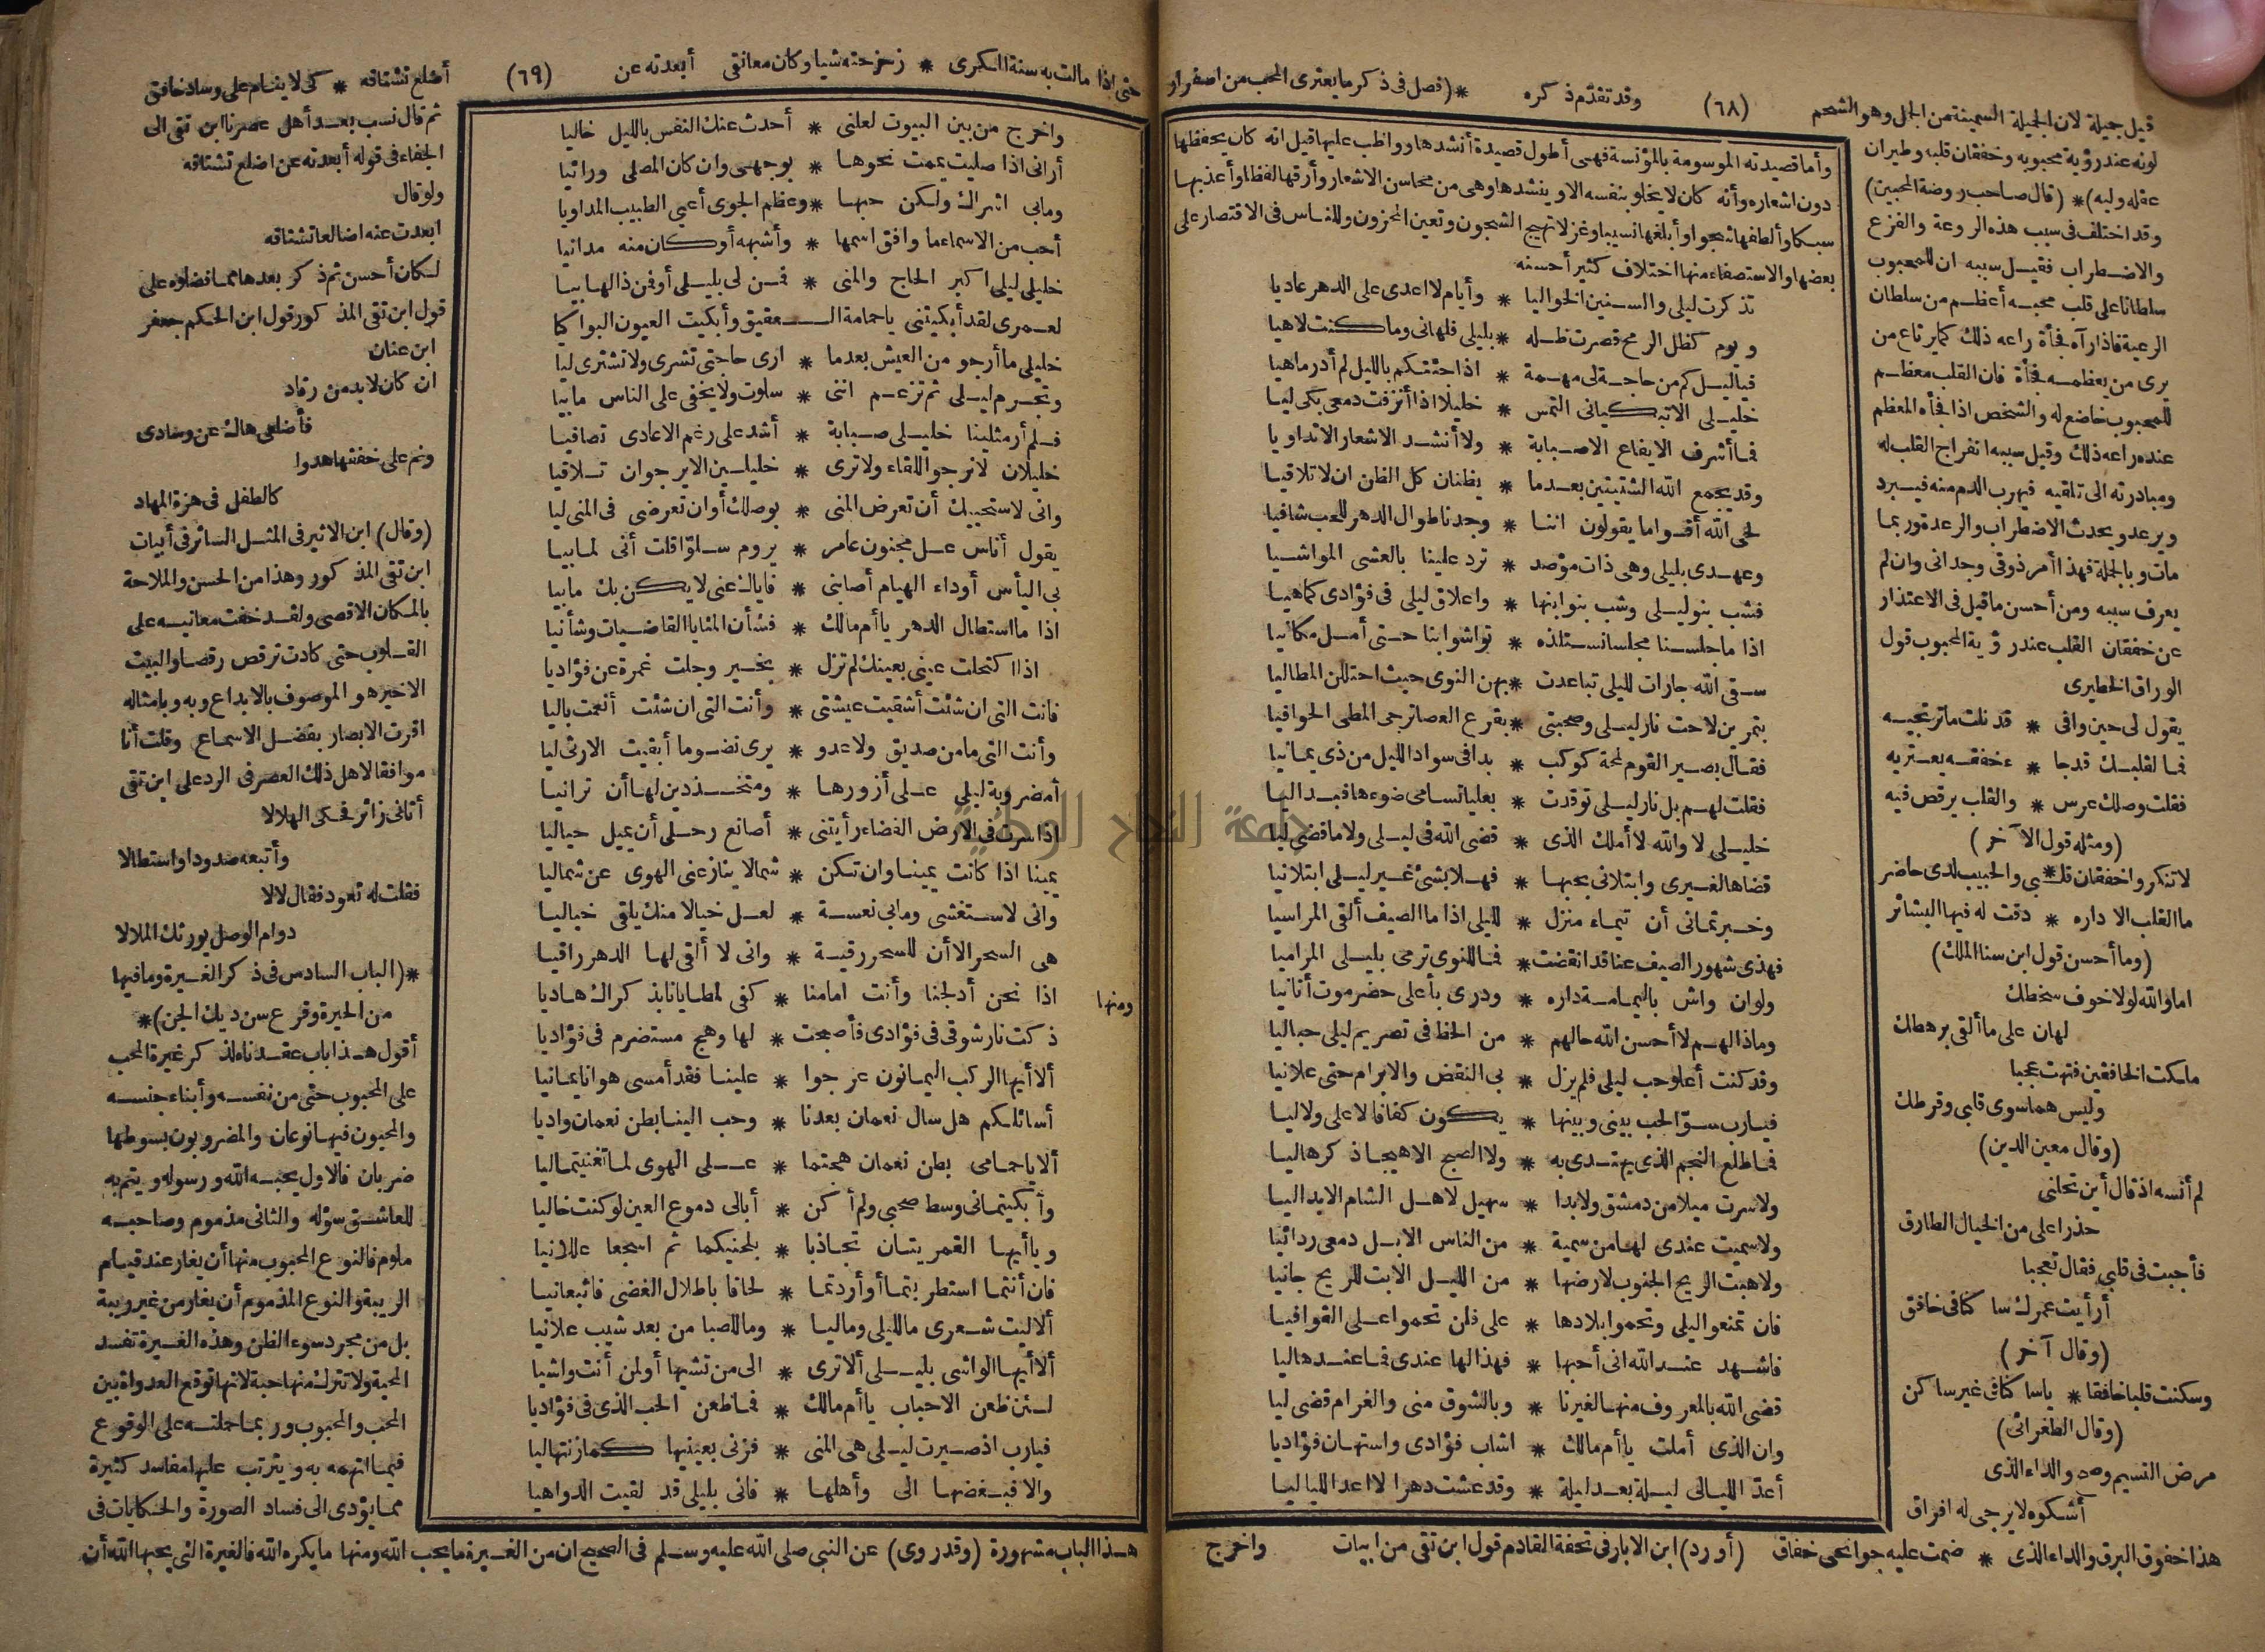 قيل جميلة لان الجميلة السمينة من الجمل وهو الشحم (٦٨) وقد تقدّم ذكره *(فصل فى ذكر ما يعترى المحب من اصفرار
لونه عند رؤية محبوبه وخفقان قلبه وطيران
عقله ولبه)* (قال صاحب روضة المحبين)
وقد اختلف فى سبب هذه الروعة والفزع
والاضطراب فقيل سببه ان للمحبوب
سلطانا على قلب محبه أعظم من سلطان
الرعية فاذا رآه فجأة راعه ذلك كما يرتاع من
يرى من يعظمه فجأة فان القلب معظم
للمحبوب خاضع له والشخص اذا فجأه المعظم
عنده راعه ذلك وقيل سببه انفراج القلب له
ومبادرته الى تلقيه فيهرب الدم منه فيبرد
ويرعد ويحدث الاضطراب والرعدة وربما
مات وبالجملة فهذا أمر ذوقى وجدانى وان لم
يعرف سببه ومن أحسن ما قيل فى الاعتذار
عن خفقان القلب عند رؤية المحبوب قول
الوراق الحظيرى
يقول لى حين وافى * قد نلت ما ترتجيه
فما لقلبك قد جا * ءخفقه يعتريه
فقلت وصلك عرس * والقلب يرقص فيه
(ومثله قول الآخر)
لا تنكروا خفقان قلبى والحبيب لدى حاضر
ما القلب الا داره * دقت له فيها البشائر
(وما أحسن قول ابن سنا الملك)
اما والله لولا خوف سخطك
لهان على ما ألقى برهطك
ملكت الخافقين فتهت عجبا
وليس هما سوى قلبى وقرطك
(وقال معين الدين)
لم أنسه اذ قال أين تحلنى
حذرا على من الخيال الطارق
فأجبت فى قلبى فقال تعجبا
أرأيت عمرك ساكنا فى خافق
(وقال آخر)
وسكنت قلبا خافقا * ياساكنا فى غير ساكن
(وقال الطغرائى)
مرض النسيم وصح والداء الذى
أشكوه لا يرجى له افراق
هذا خفوق البرق والداء الذى * ضمت عليه جوانحى خفاق (أورد) ابن الابار فى تحفة القادم قول ابن تقى من ابيات
وأما قصيدته الموسومة بالمؤنسة فهى أطول قصيدة أنشدها وواظب عليها قيل انه كان يحفظها
دون اشعاره وأنه كان لا يخلو بنفسه الا وينشدها وهى من محاسن الاشعار وأرقها لفظا وأعذبها
سبكا وألطفها شجوا وأبلغها نسيبا وغزلا تهيج الشجون وتعين المحزون وللناس فى الاقتصار على
بعضها والاستصفاء منها اختلاف كثير أحسنه
تذكرت ليلى والسنين الخواليا * وأيام لا اعدى على الدهر عاديا
ويوم كظل الرمح قصرت ظله * بليلى فلهانى وما كنت لاهيا
فياليل كم من حاجة لى مهمة * اذا جئتكم بالليل لم أدر ماهيا
خليلى الا تبكيانى التمس * خليلا اذا أنزفت دمعى بكى ليا
فما أشرف الايفاع الا صبابة * ولا أنشد الاشعار الا تداويا
وقد يجمع الله الشتيتين بعدما * يظنان كل الظن ان لا تلاقيا
لحى الله أقواما يقولون اننا * وجدنا طوال الدهر للحب شافيا
وعهدى بليلى وهى ذات مؤصد * ترد علينا بالعشى المواشيا
فشب بنو ليلى وشب بنو ابنها * واعلاق ليلى فى فؤادى كماهيا
اذا ما جلسنا مجلسا نستلذه * تواشوا بنا حتى أمل مكانيا
سقى الله جارات لليلى تباعدت * بهن النوى حيث احتللن المطاليا
بتمرين لاحت نار ليلى وصحبتى * بقرع العصا ترجى المطى الحوافيا
فقال بصير القوم لمحة كوكب * بدا فى سواد الليل من ذى يمانيا
فقلت لهم بل نار ليلى توقدت * بعليا تسامى ضوءها فبدا ليا
خليلى لا والله لا أملك الذى * قضى الله فى ليلى ولا ما قضى ليا
قضاها لغيرى وابتلانى بحبها * فهلا بشئ غير ليلى ابتلانيا
وخبرتمانى أن تيماء منزل * لليلى اذا ما الصيف ألقى المراسيا
فهذى شهور الصيف عنا قد انقضت * فما للنوى ترمى بليلى المراميا
ولو ان واش باليمامة داره * ودرى بأعلى حضرموت أتانيا
وماذا لهم لا أحسن الله حالهم * من الحظ فى تصريم ليلى حباليا
وقد كنت أعلو حب ليلى فلم يزل * بى النقض والابرام حتى علانيا
فيارب سوّ الحب بينى وبينها * يكون كفافا لا على ولا ليا
فما طلع النجم الذى يهتدى به * ولا الصبح الا هيجا ذكرها ليا
ولا سرت ميلا من دمشق ولا بدا * سهيل لاهل الشام الا بدا ليا
ولا سميت عندى لها من سمية * من الناس الا بل دمعى ردائيا
ولا هبت الريح الجنوب لارضها * من الليل الا بت للريح جانيا
فان تمنعوا ليلى وتحموا بلادها * على فلن تحموا على القوافيا
فاشهد عند الله انى أحبها * فهذا لها عندى فما عندها ليا
قضى الله بالمعروف منها لغيرنا * وبالشوق منى والغرام قضى ليا
وان الذى أملت يا أم مالك * اشاب فؤادى واستهان فؤاديا
أعدّ الليالى ليلة بعد ليلة * وقد عشت دهرا لا اعد اللياليا
واخرج
حتى اذا مالت به سنة الكرى * زحزحته شيا وكان معانقى أبعدته عن (٦٩) أضلع تشتاقه * كى لا ينام على وساد خافق
واخرج من بين البيوت لعلنى * أحدث عنك النفس بالليل خاليا
أرانى اذا صليت يممت نحوها * بوجهى وان كان المصلى ورائيا
ومابى اشراك ولكن حبها * وعظم الجوى أعيى الطبيب المداويا
أحب من الاسماء ما وافق اسمها * وأشبهه أو كان منه مدانيا
خليلى ليلى اكبر الحاج والمنى * فمن لى بليلى أو فمن ذا لها بيا
لعمرى لقد أبكيتنى ياحمامة العقيق وأبكيت العيون البواكيا
خليلى ما أرجو من العيش بعدما * ارى حاجتى تشرى ولا تشترى ليا
وتجرم ليلى ثم تزعم اننى * سلوت ولا يخفى على الناس مابيا
فلم أر مثلينا خليلى صبابة * أشد على رغم الاعادى تصافيا
خليلان لا نرجو اللقاء ولا ترى * خليلين الا يرجوان تلاقيا
وانى لاستحييك أن تعرض المنى * بوصلك أو ان تعرضى فى المنى ليا
يقول أناس عل مجنون عامر * يروم سلوّا قلت أنى لمابيا
بى اليأس أوداء الهيام أصابنى * فاياك عنى لا يكن بك مابيا
اذا ما استطال الدهر يا أم مالك * فشأن المنايا القاضيات وشأنيا
اذا اكتحلت عينى بعينك لم تزل * بخير وجلت غمرة عن فؤاديا
فانت التى ان شئت أشقيت عيشتى * وأنت التى ان شئت أنعمت باليا
وأنت التى ما من صديق ولا عدو * يرى نضو ما أبقيت الا رثى ليا
أمضروبة ليلى على أزورها * ومتخذ ذنبا لها أن ترانيا
اذا سرت فى الارض الفضاء رأيتنى * أصانع رحلى أن يميل حياليا
يمينا اذا كانت يمينا وان تكن * شمالا ينازعنى الهوى عن شماليا
وانى لاستغشى ومابى نعسة * لعل خيالا منك يلقى خياليا
هى السحر الا أن للسحر رقية * وانى لا ألقى لها الدهر راقيا
ومنها اذا نحن أدلجنا وأنت امامنا * كفى لمطايانا بذكراك هاديا
ذكت نار شوقى فى فؤادى فأصبحت * لها وهج مستضرم فى فؤاديا
ألا أيها الركب اليمانون عرجوا * علينا فقد أمسى هوانا يمانيا
أسائلكم هل سال نعمان بعدنا * وحب الينا بطن نعمان واديا
ألا ياحمامى بطن نعمان هجتما * على الهوى لما تغنيتما ليا
وأبكيتمانى وسط صحبى ولم أكن * أبالى دموع العين لو كنت خاليا
ويا أيها القمريتان تجاذبا * بلحنيكما ثم اسجعا عللانيا
فان أنتما استطربتما أو أردتما * لحاقا باطلال الغضى فاتبعانيا
ألا ليت شعرى ما لليلى وماليا * وما للصبا من بعد شيب علانيا
ألا أيها الواشى بليلى ألا ترى * الى من تشيها أو لمن أنت واشيا
لئن ظعن الاحباب يا أم مالك * فما ظعن الحب الذى فى فؤاديا
فيارب اذ صيرت ليلى هى المنى * فزنى بعينيها كما زنتها ليا
والا فبغضها الى وأهلها * فانى بليلى قد لقيت الدواهيا
ثم قال نسب بعد أهل عصرنا ابن تقى الى
الجفاء فى قوله أبعدته عن اضلع تشتاقه
ولو قال
ابعدت عنه اضالعا تشتاقه
لكان أحسن ثم ذكر بعدها مما فضلوه على
قول ابن تقى المذكور قول ابن الحكم جعفر
ابن عنان
ان كان لابد من رقاد
فأضلعى هاك عن وسادى
ونم على خفقها هدوا
كالطفل فى هزة المهاد
(وقال) ابن الاثير فى المثل السائر فى أبيات
ابن تقى المذكور وهذا من الحسن والملاحة
بالمكان الاقصى ولقد خفت معانيه على
القلوب حتى كادت ترقص رقصا والبيت
الاخير هو الموصوف بالابداع وبه وبامثاله
اقرت الابصار بفضل الاسماع وقلت أنا
موافقا لاهل ذلك العصر فى الرد على ابن تقى
أتانى زائر فحكى الهلالا
وأتبعه صدودا واستطالا
فقلت له تعود فقال لا لا
دوام الوصل يورثك الملالا
*(الباب السادس فى ذكر الغيرة وما فيها
من الحيرة وقرع سن ديك الجن)*
أقول هذا باب عقدناه لذكر غيرة المحب
على المحبوب حتى من نفسه وأبناء جنسه
والمحبون فيها نوعان والمضروبون بسوطها
ضربان فالاول يحبه الله ورسوله ويتم به
للعاشق سؤله والثانى مذموم وصاحبه
ملوم فالنوع المحبوب منها أن يغار عند قيام
الريبة والنوع المذموم أن يغار من غير ريبة
بل من مجرد سوء الظن وهذه الغيرة تفسد
المحبة ولا تترك منها حبة لانها توقع العداوة بين
المحب والمحبوب وربما حملته على الوقوع
فيما اتهمه به ويترتب عليها مفاسد كثيرة
مما يؤدى الى فساد الصورة والحكايات فى
هذا الباب مشهورة (وقد روى) عن النبى صلى الله عليه وسلم فى الصحيح ان من الغيرة ما يحب الله ومنها ما يكره الله فالغيرة التى يحبها الله أن
جامعة النجاح الوطنية